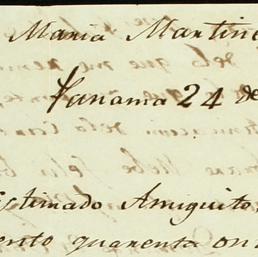 Maria Martine
Panama 24 de
Estimado Amiguito,
ento quarenta on